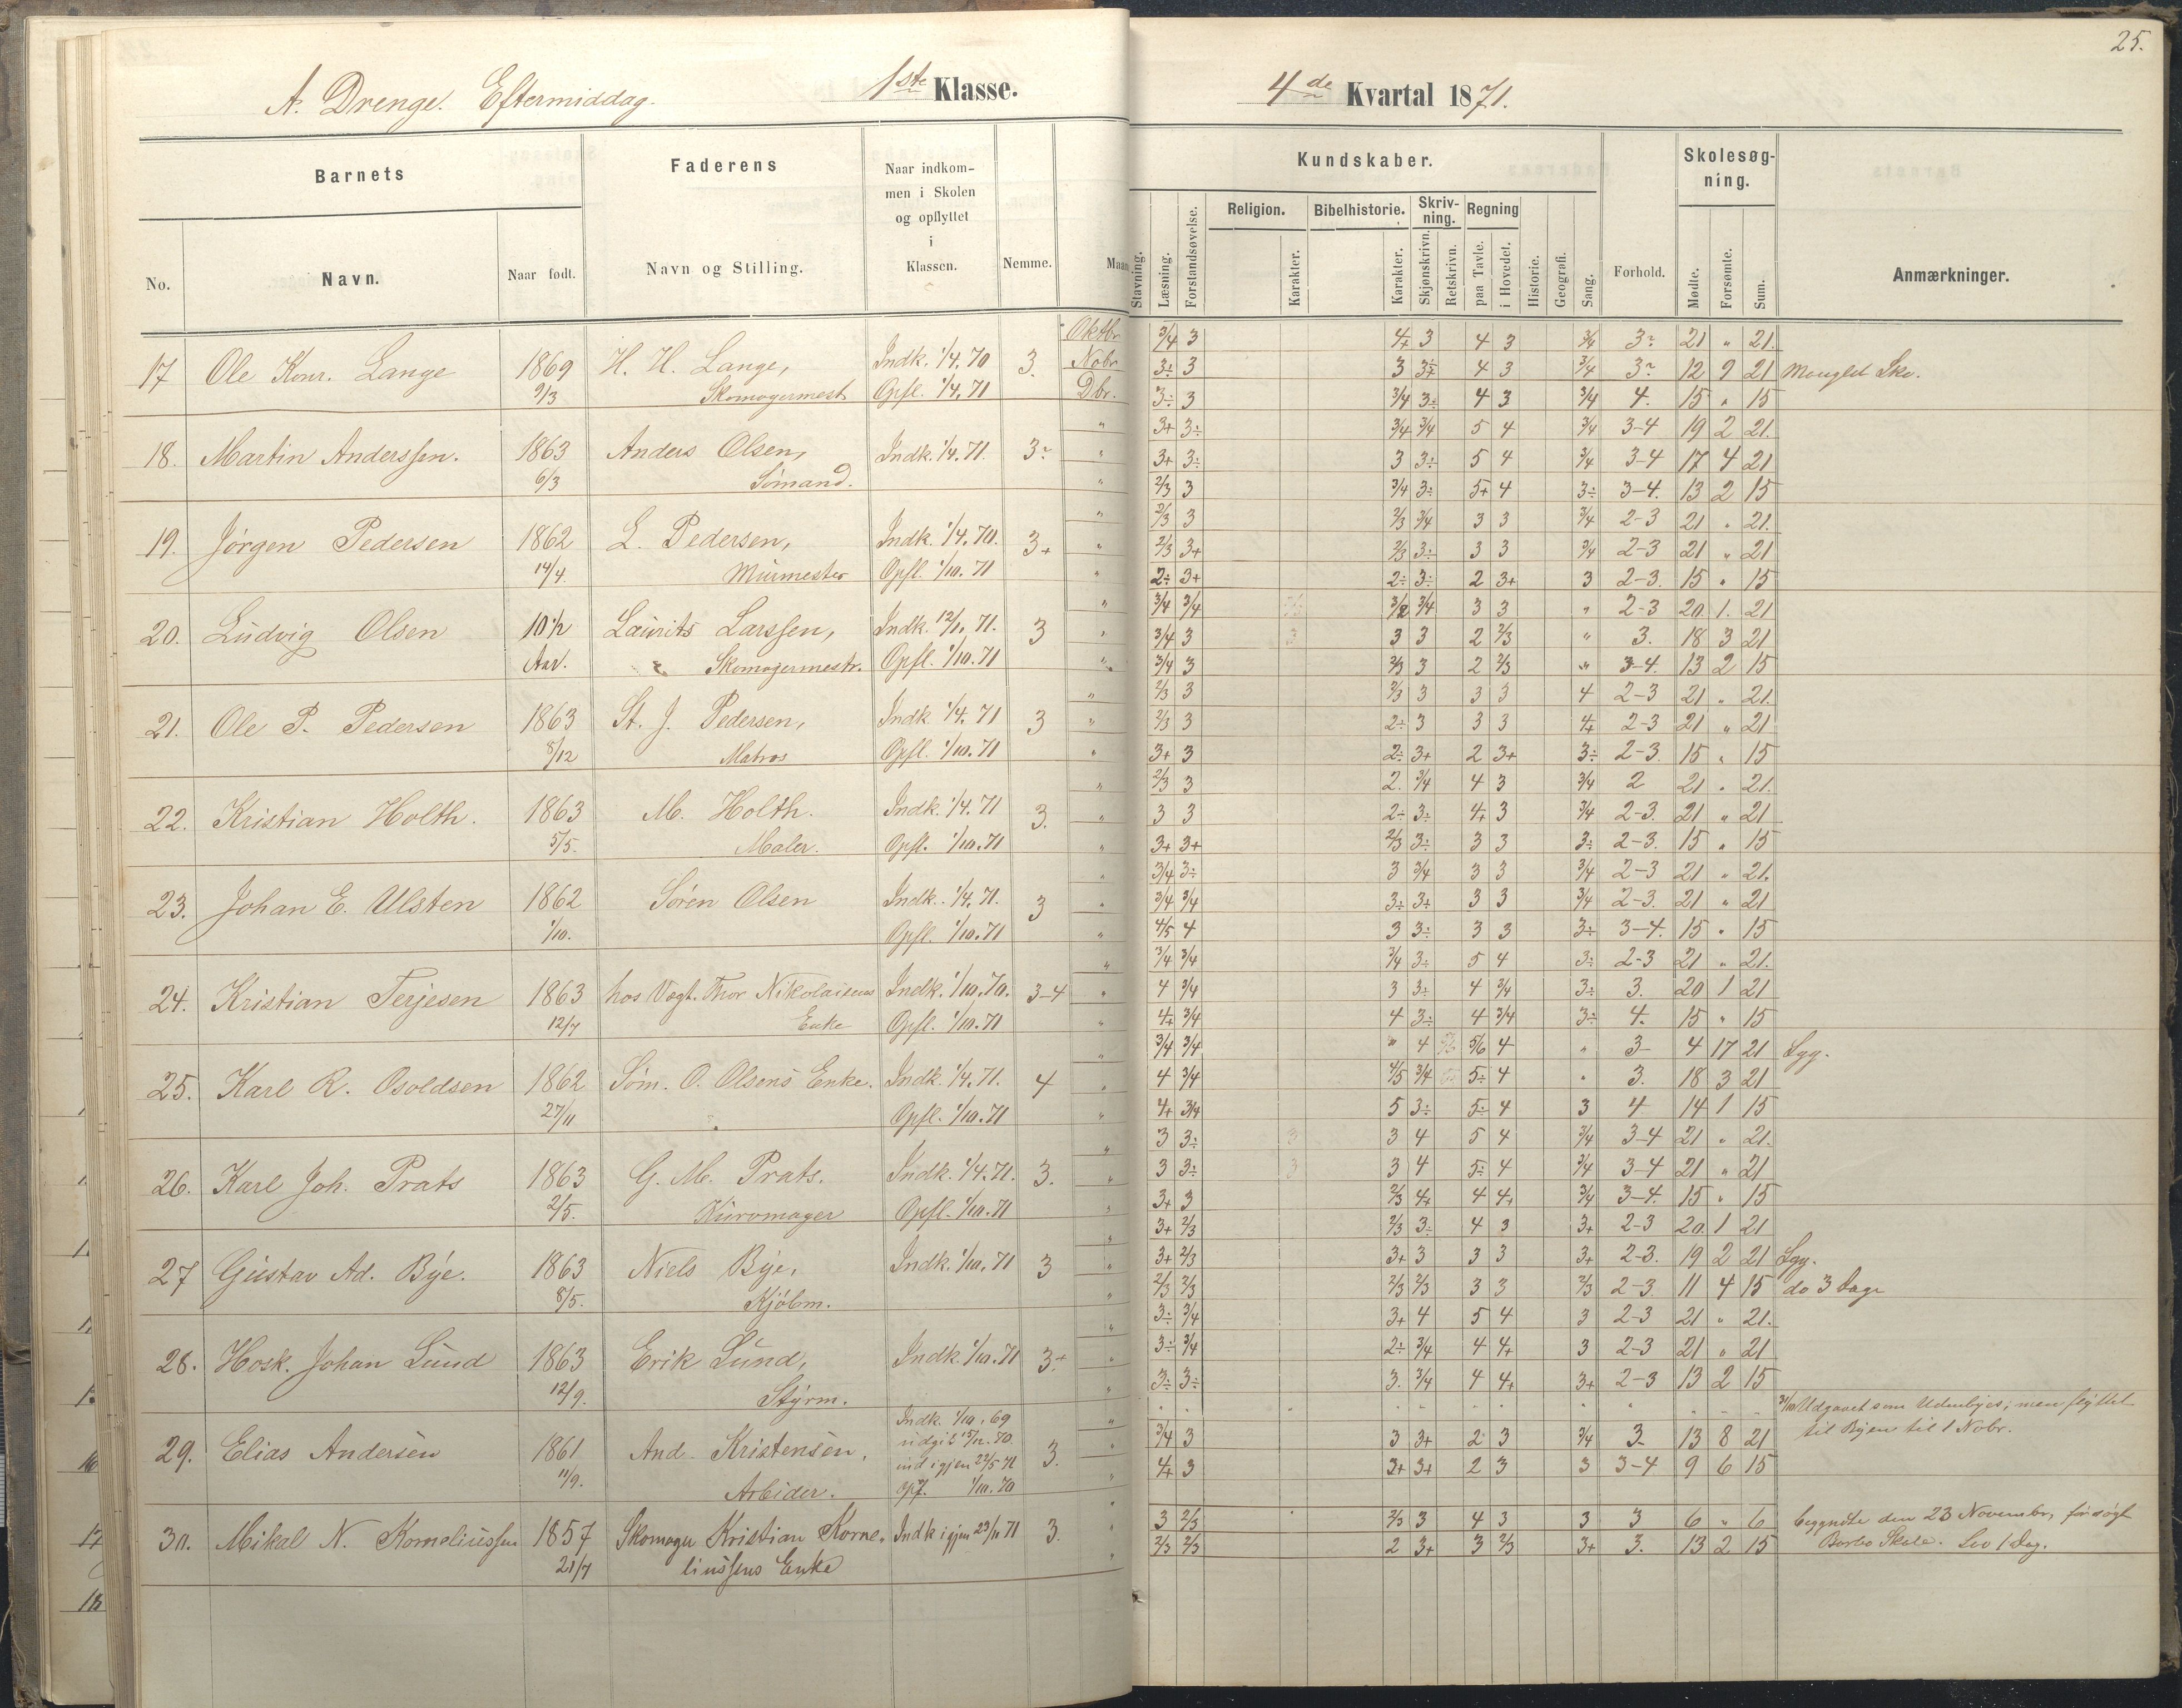 25.
A. Drenge. Eftermiddag. 1ste Klasse. 4de Kvartal 1871.
Barnets Faderens Naar indkommen i Skolen og opflyttet i Klassen. Nemme. Kundskaber. Forhold. Skolesøgning. Anmærkninger.
Religion. Bibelhistorie. Skrivning. Regning
No. Navn. Naar født. Navn og Stilling. Maan
Stavning. Læsning. Forstandsøvelse. Karakter. Karakter. Skjønskrivn. Retskrivn. paa Tavle. i Hovedet. Historie. Geografi. Sang. Møde. Forsømte. Sum.
Oktbr. 3/4 3 4+ 3 4 3 3/4 3 21 " 21.
17 Ole Konr. Lange 1869 H. H. Lange, Indk. 1/4.70 3. Nobr 3÷ 3 3 3 4 3 3/4 3 12 9 21 Mangled Sko.
9/3 Skomagermest Opfl. 1/4.71 Dbr. 3÷ 3 3/4 3÷ 4 3 3/4 4. 15 " 15
" 3+ 3÷ 3/4 3/4 5 4 3/4 3-4 19 2 21.
18. Martin Anderssen. 1863 Anders Olsen, Indk. 1/4.71. 3 " 3+ 3÷ 3 3÷ 5 4 3/4 3-4 17 4 21
6/3 Sømand. " 2/3 3 3/4 3÷ 5+ 4 3÷ 3-4. 13 2 15
" 2/3 3 2/3 3/4 3 3 3/4 2-3 21 " 21.
19. Jørgen Pedersen 1862 L. Pedersen, Indk. 1/4.70. 3+ " 2/3 3+ 2/3 3÷ 3 3 3/4 2-3 21 " 21
14/4. Murmester Opfl. 1/10.71 " 2÷ 3+ 2÷ 3÷ 2 3+ 3 2-3. 15 " 15
" 3/4 3/4 3/4 3 3 " 2-3 20 1. 21
20. Ludvig Olsen 10 1/2 Laurits Larssen, Indk. 12/1.71. 3 " 3/4 3 3 3 3 2 2/3 " 3. 18 3 21
Aar. Skomagermestr. Opfl. 1/10.71 " 3/4 3 2/3 3 2 2/3 " 3-4. 13 2 15
" 2/3 3 2/3 3 3 3 4 2-3 21 " 21.
21. Ole P. Pedersen 1863 St. J. Pedersen, Indk 1/4.71 3 " 2/3 3 2÷ 3 3 3 4+ 2-3 21 " 21
8/12 Matros Opfl. 1/10.71 " 3+ 3 2÷ 3+ 2 3+ 3÷ 2-3. 15 " 15
" 2/3 3 2. 3/4 4 3 3/4 2 21 " 21.
22. Kristian Holth. 1863 M. Holth. Indk. 1/4.71 3. " 3 3 2÷ 3÷ 4+ 3 3/4 2-3. 21 " 21
5/5. Maler. Opfl. 1/10.71 " 3+ 3+ 2/3 3÷ 3 3 3÷ 2-3. 15 " 15
" 3/4 3÷ 3 3/4 3 3 3/4 2-3 21 " 21.
23. Johan E. Ulsten 1862 Søren Olsen Indk. 1/4.71. 3 " 3/4 3/4 3÷ 3÷ 3 3 3/4 2-3. 21 " 21
1/10. Opfl. 1/10.71 " 4/5 4 3 3÷ 3 3 3÷ 3-4. 15 " 15
" 3/4 3/4 3/4 3÷ 5 4 3÷ 2-3 21 " 21.
24. Kristian Terjesen 1863 hos Vægt. Thor Nikolaisens Indk. 1/10.70. 3-4 " 4 3/4 3 3÷ 4 3/4 3÷ 3. 20 1 21
12/7 Enke Opfl. 1/10.71 " 4+ 3/4 4 3÷ 4 3/4 3÷ 4. 15 " 15
" 3/4 3/4 " 4 5/6 4 " 3 4 17 21 Syg.
25. Karl R. Osoldsen 1862 Søm. O. Olsens Enke. Indk. 1/4.71. 4 " 4 3/4 4/5 3/4 5÷ 4 " 3. 18 3 21
27/11 Opfl. 1/10.71 " 4+ 3/4 5 3÷ 5÷ 4 3 4 14 1 15
" 3 3÷ 3 3 4 5 4 3/4 3-4 21 " 21.
26. Karl Joh. Prats 1863 G. M. Prats. Indk. 1/4.71. 3. " 3 3÷ 3 3 4 5÷ 4 3/4 3-4 21 " 21
2/5. Kurvmager Opfl. 1/10.71 " 3+ 3 2/3 4+ 4 4+ 3/4 3-4. 15 " 15
" 3+ 2/3 2/3 3÷ 4 3 3+ 2-3 20 1 21
27 Gustav Ad. Bye. 1863 Niels Bye, Indk. 1/10.71 3 " 3+ 2/3 3+ 3 3 3 3+ 2-3. 19 2 21 Syg.
8/5. Kjøbm. " 2/3 2/3 2/3 2/3 3 3 2/3 2-3. 11 4 15 do 3 Dage
" 3÷ 3/4 3+ 4 5 4 3 2-3 21 " 21.
28. Hosk. Johan Lund 1863 Erik Lund, Indk. 1/10.71 3÷ " 3÷ 3/4 2÷ 3/4 4 4+ 3 2-3 21 " 21
12/9. Styrm. " 3÷ 3÷ 3. 3/4 4 4+ 3+ 2-3 13 2 15
Indk. 1/10.69 " 31/10 Udgaaet som Udenbyes; men flyttet
29. Elias Andersen 1861 And. Kristensen, udgik 15/12.70. 3. " 3/4 3 3 3+ 2 3 3/4 3. 13 8 21 til Byen til 1 Nobr.
11/9. Arbider. ind igjen 22/5 71 " 4+ 3 3+ 3+ 2 3 3 3-4 9 6 15
opf. 1/10.70
30. Mikal N. Korneliussen 1857 Skomager Kristian Korne- Indk igjen 23/11 71 3. " 3 2/3 2/3 3 4 3 3 3 6 " 6 begyndte den 23 Novembr, før søgt
21/7 liussens Enke " 2/3 2/3 2 3+ 3 2/3 3+ 3. 13 2 15 Borbo Skole. Lov 1 Dag.